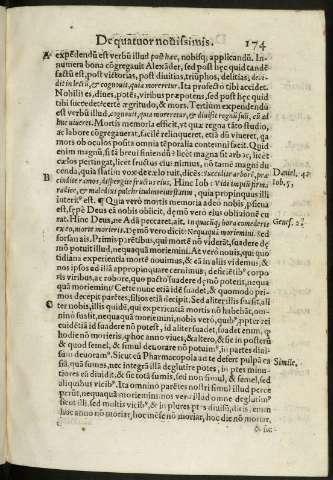 De quatuor nouissimis. 174
A expēdendū est verbū illud post hæc, nobisq; applicandū. In-
numera bona cōgregauit Alexāder, sed post hęc quid candē
factū est, post victorias, post diuitias, triūphos, delitias, deci-
dit in lectū, & cognouit, quia moreretur. Ita profecto tibi accidet.
Nobilis es, diues, potēs, viribus præpotens, sed post hęc quid
tibi succedet? certe ægritudo, & mors. Tertium expendendū
est verbū illud, cognouit, quia moreretur, & diuisit regnū suū, cū ad
huc viueret. Mortis memoria efficit, vt quæ regna tāto studio,
ac labore cōgregauerat, facile relinqueret, etiā dū viueret, qa
mors ob oculos posita omnia tēporalia contemni facit. Quid
enim magnū, si tā breui finiendū? licet magna sit arbor, licet
cælos pertingat, licet fructus eius nimius, nō tamē magni du-
cenda, quia statim vox de cælo ruit, dicēs: Succidite arborē, præ-
B cindite ramos, dispergite fructus eius, Hinc Iob: Vidi impiū firma
radice, & maledixi pulchritudini eius statim, quia propinquus illi
interitus est. ¶ Quia verò mortis memoria adeo nobis, pficua
est, sępè Deus eā nobis obiicit, dęmō vero eius obliuionē cu-
rat. Hinc Deus, ne Adā peccaret, ait. In quacūq; hora comederis
ex eo, morte morieris. Dęmō verò dicit: Nequaquā moriemini. Sed
forsan ais. Primis parētibus, qui mortē nō viderāt, suadere dę
mō potuit illud, nequaquā moriemini. At verò nouis, qui quo
tidiana experientia mortē nouimus, & eā in aliis videmus, &
nos ipsos ad illā appropinquare cernimus, deficiētibus corpo
ris viribus, ac robore, quo pacto suadere dęmō poterit, nequa
quā moriemini? Certe nunc etiā idē suadet, & quomodo pri-
mos decepit parētes, filios etiā decipit. Sed aliter illis suasit, ali
C ter nobis, illis quidē, qui experientiā mortis nō habebāt, om-
ninò suasit, nequaquā moriemini, nobis verò, quibus propter rei
euidētiā id suadere nō potest, id aliter suadet, suadet enim, q
hodie nō morieris, q hoc anno viues, & altero, & sic in posterū
& quod semel, & simul deuorare nō potuimus, in partes diui-
sam deuoramus. Sicut cū Pharmacopola ad te defert pulpā cas
siā, quā sumas, nec integrā illā deglutire potes, in ptes minu-
tiores eā diuidit, & sic totā sumis, sed non simul, & semel, sed
aliquibus vicibus. Ita omnino parētes nostri simul illud perce
perūt, nequaquā moriemini, nos verò illud omne deglutimus
sicut illi, sed multis vicibus, & in plures ptes diuisū, dicit enim
hoc anno nō moriar, hoc mēse nō moriar, hoc die nō moriar,
Daniel. 4.
Iob, 5,
Genes. 2.
Simile.